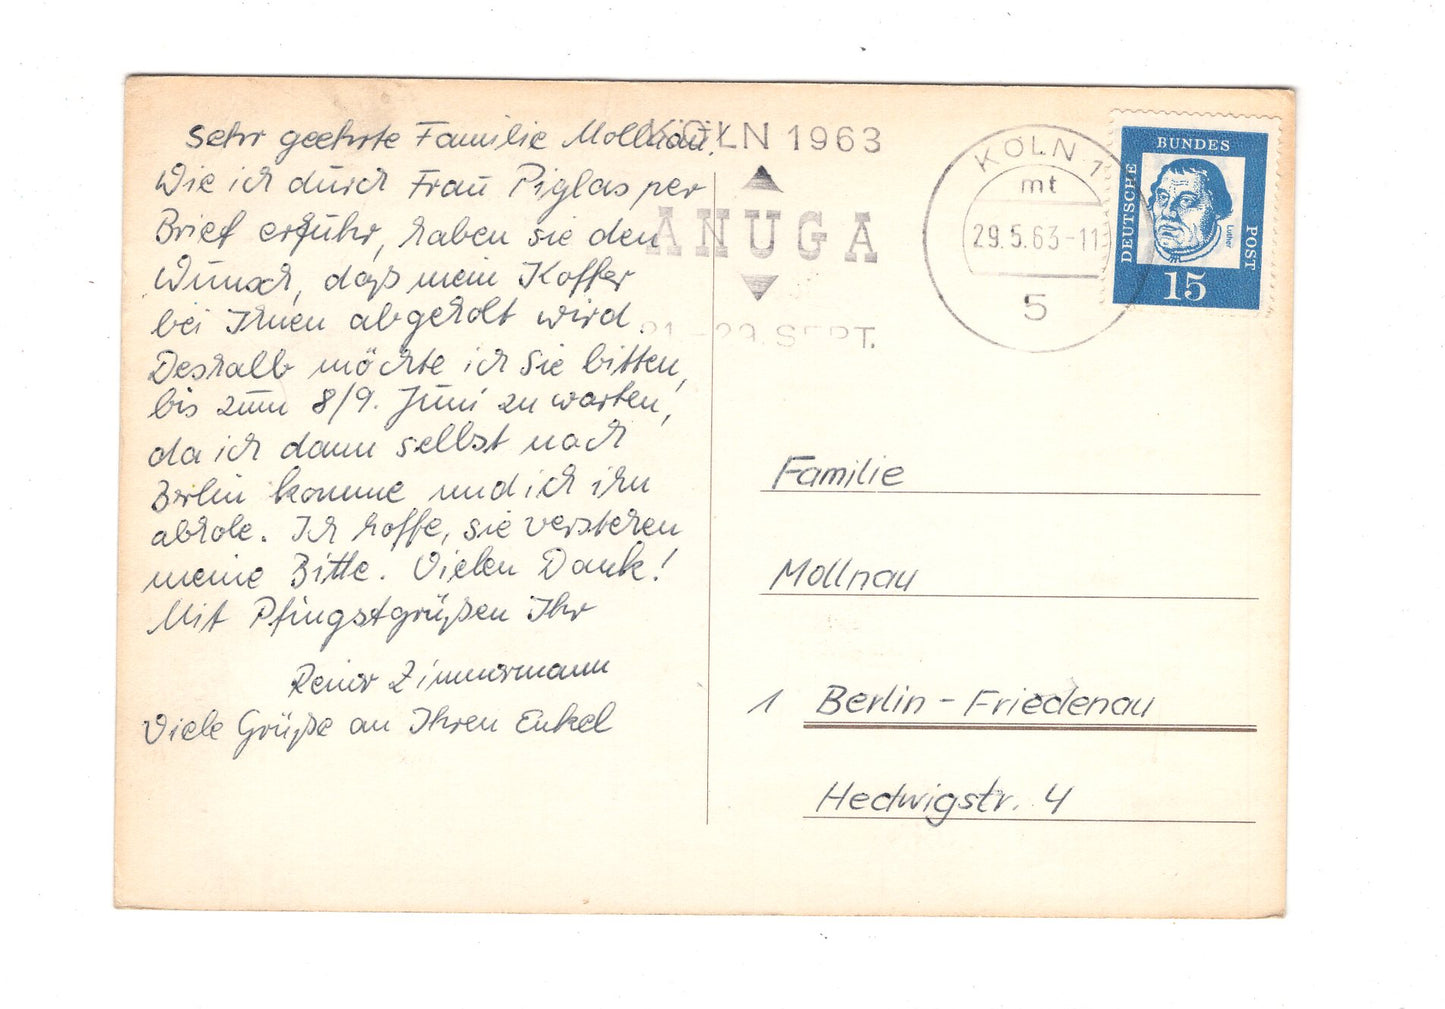 Sehr geehrte Familie Mollnau!
Wie ich durch Frau Piglas per
Brief erfuhr, haben sie den
Wunsch, daß mein Koffer
bei Ihnen abgeholt wird.
Deshalb möchte ich Sie bitten,
bis zum 8/9. Juni zu warten,
da ich dann selbst nach
Berlin komme und ich ihn
abhole. Ich hoffe, sie verstehen
meine Bitte. Vielen Dank!
Mit Pfingstgrüßen Ihr
Reiner Zimmermann
Viele Grüße an Ihren Enkel
KÖLN 1963
ANUGA
21.-29. SEPT.
KÖLN 1
mt
29.5.63-11
5
DEUTSCHE
BUNDES
POST
Luther
15
Familie
Mollnau
1 Berlin-Friedenau
Hedwigstr. 4